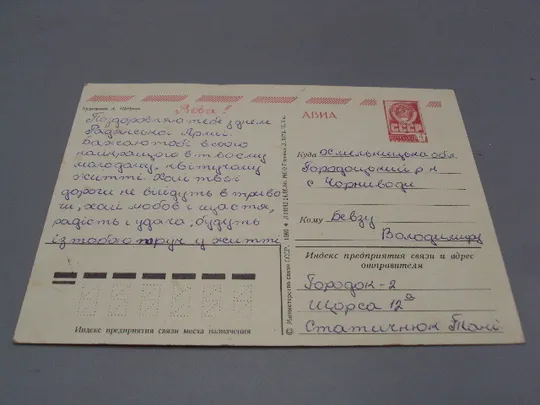 Вова!
Поздоровляю тебе з днем
Радянської Армії.
Бажаю тобі всього
найкращого в твоєму
молодому, квітучому
житті. Хай твої
дороги не ведуть в триво
ги, хай любов і щастя,
радість і удача, будуть
із тобою поруч у житті
Индекс предприятия связи места назначения
© Министерство связи СССР.
АВИА
СССР
Куда Хмельницька обл.
Городоцький р-н
с. Чорниводи
Кому Бевзу
Володимиру
Индекс предприятия связи и адрес
отправителя
Городок-2
Щорса 12
Статичнюк Толі